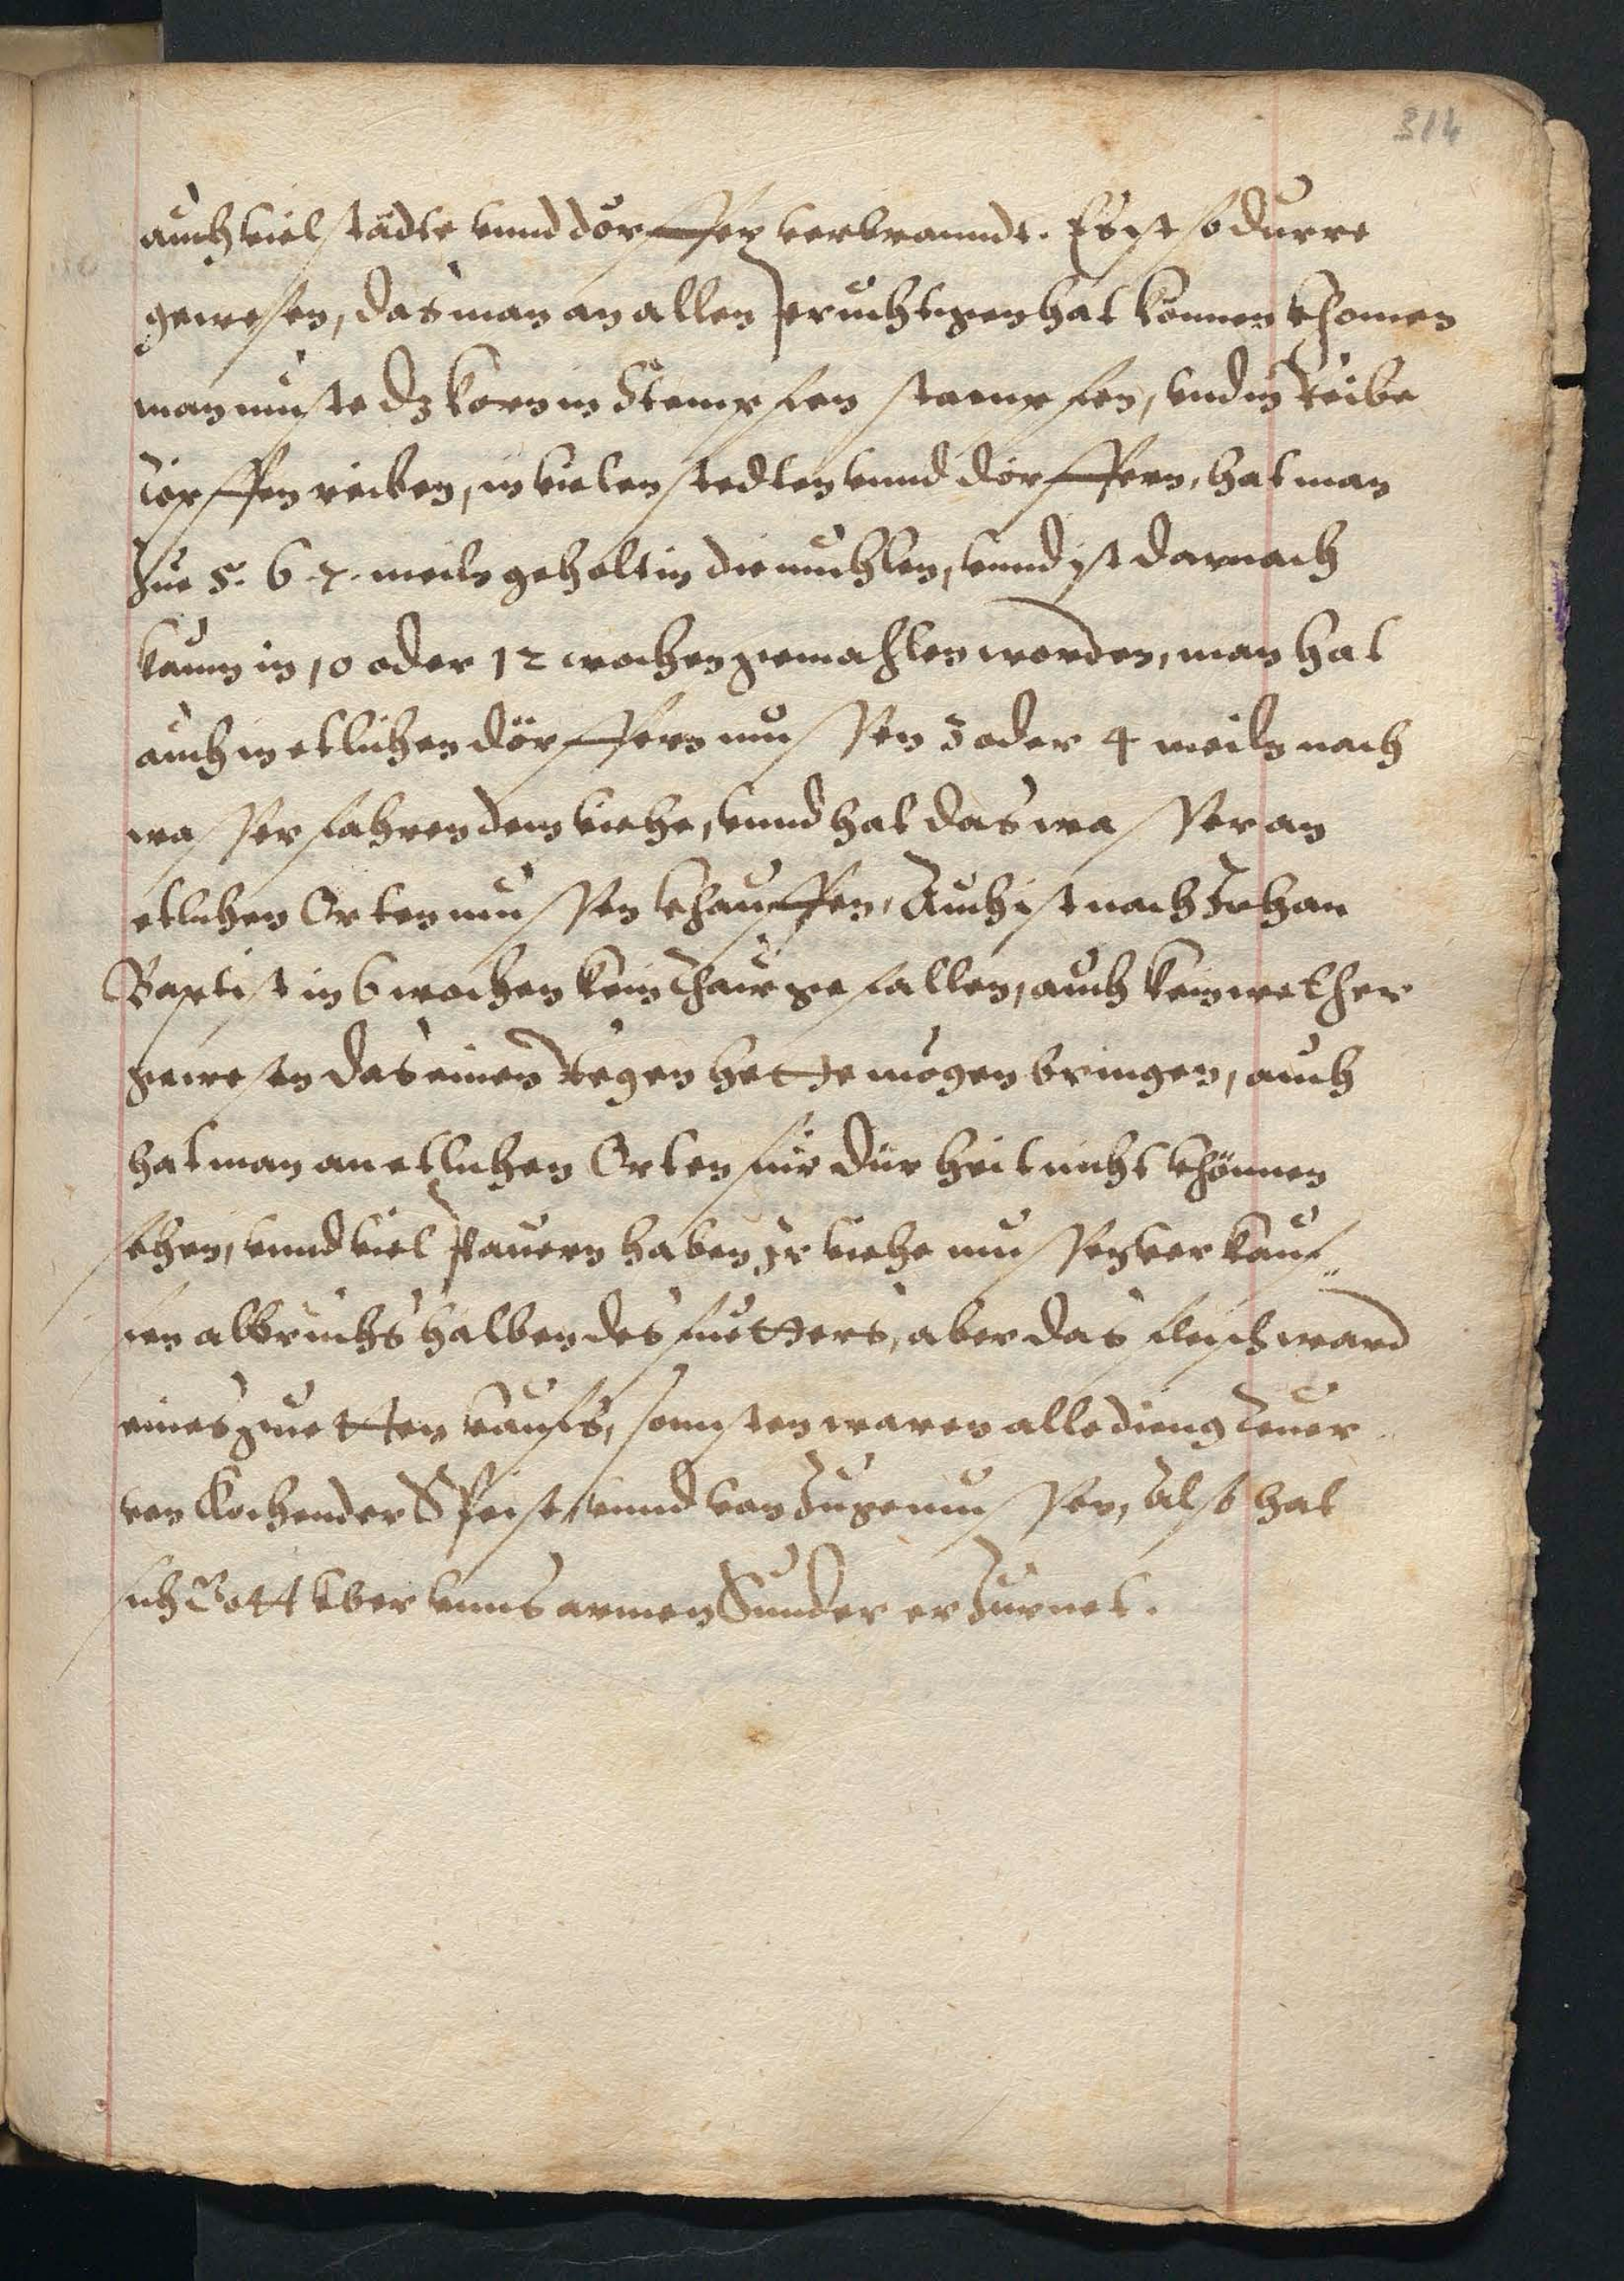 314
auch viel städte vnnd dörffer verbranndt. Es ist so durre
gewesen, das man an allen Jeruchtigen hat können khomen
man muste dz korn in Stempfen stampfen, vnd in Reibe
töpffen reiben, in vielen stedten vnnd dörffern, hat man
Zue 5. 6. 7. meiln geholt in die muhlen, vnnd ist darnach
kaum in 10 oder 12 wochen gemahlen worden, man hat
auch in etlichen dörffern mussen 3 oder 4 meiln nach
wasser fahren dem viehe, vnnd hat das wasser an
etlichen Orten mussen khauffen, Auch ist nach Johan
Baptist in 6 wochen kein Thaw gefallen, auch kein wether
gewesen das einen Regen hette mögen bringen, auch
hat man an etlichen Orten für dürheit nicht khönnen
sehen, vnnd viel Pauern haben Ir viehe mussen verkauf„
fen abbruchs halben des fuetters, aber das fleisch ward
eines guetten kaufs, sonnsten waren alle dieng teuer
von kochender Speise, vnnd von Zugemussen, Also hat
sich Gott vber vnns armen Sunder erzurnet.